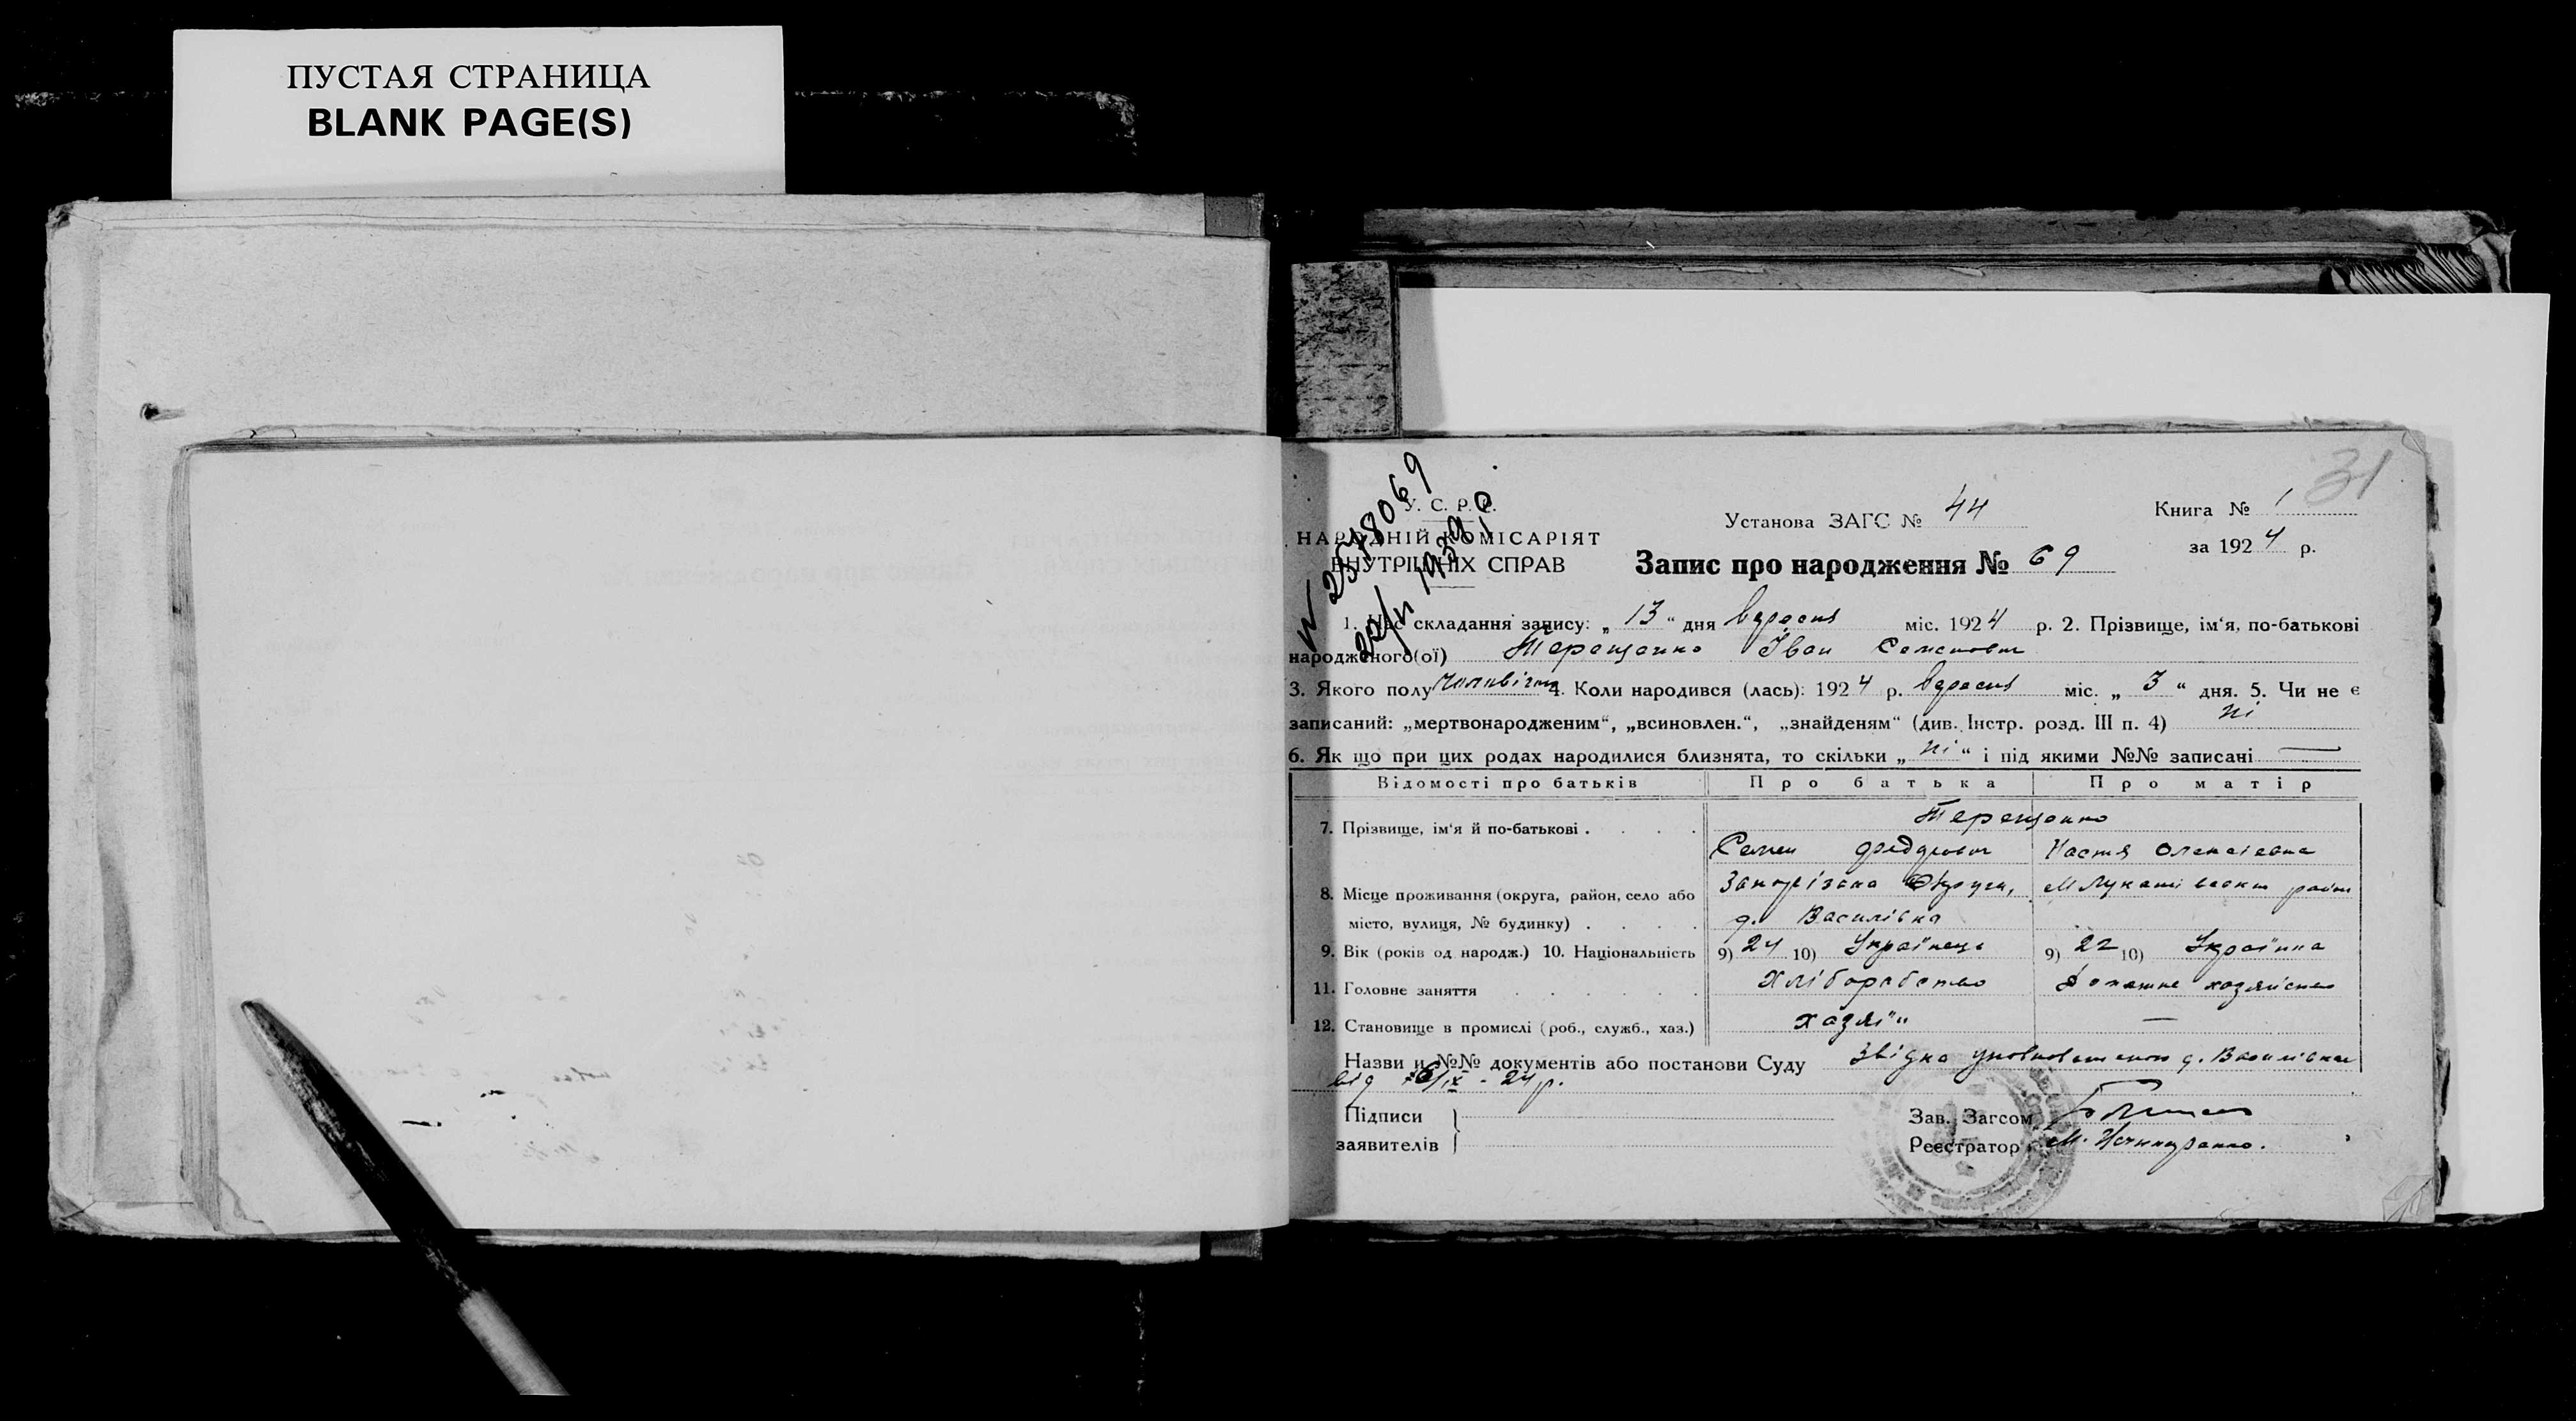 ПУСТАЯ СТРАНИЦА
BLANK PAGE(S)
31
У. С. Р. Р.
НАРОДНІЙ КОМІСАРІЯТ
ВНУТРІШНІХ СПРАВ
Установа ЗАГС № 44
Книга № 1
за 1924 р.
Запис про народження № 69
1. Час складання запису: „ 13 “ дня вересня міс. 1924 р. 2. Прізвище, ім‘я, по-батькові
народженого(ої) Терещенко Іван Семенович
3. Якого полу 4. Коли народився (лась): 1924 р. вересня міс. „ 3 “ дня. 5. Чи не є
записаний: „мертвонародженим“, „всиновлен.“, „знайденям“ (див. Інстр. розд. III п. 4) ні
6. Як що при цих родах народилися близнята, то скільки „ ні “ і під якими №№ записані —
Відомості про батьків Про батька Про матір
7. Прізвище, ім‘я й по-батькові . . . . Терещенко
Семен Настя
8. Місце проживання (округа, район, село або Округа, район
місто, вулиця, № будинку) . . . . д. Василівка
9. Вік (років од народж.) 10. Національність 9) 24 10) Українець 9) 22 10) Українка
11. Головне заняття . . . . . . Хліборобство
12. Становище в промислі (роб., служб., хаз.) хазяїн —
Назви и №№ документів або постанови Суду д. Василівка
від 6/IX - 24 р.
Підписи
заявителів
Зав. Загсом
Реєстратор